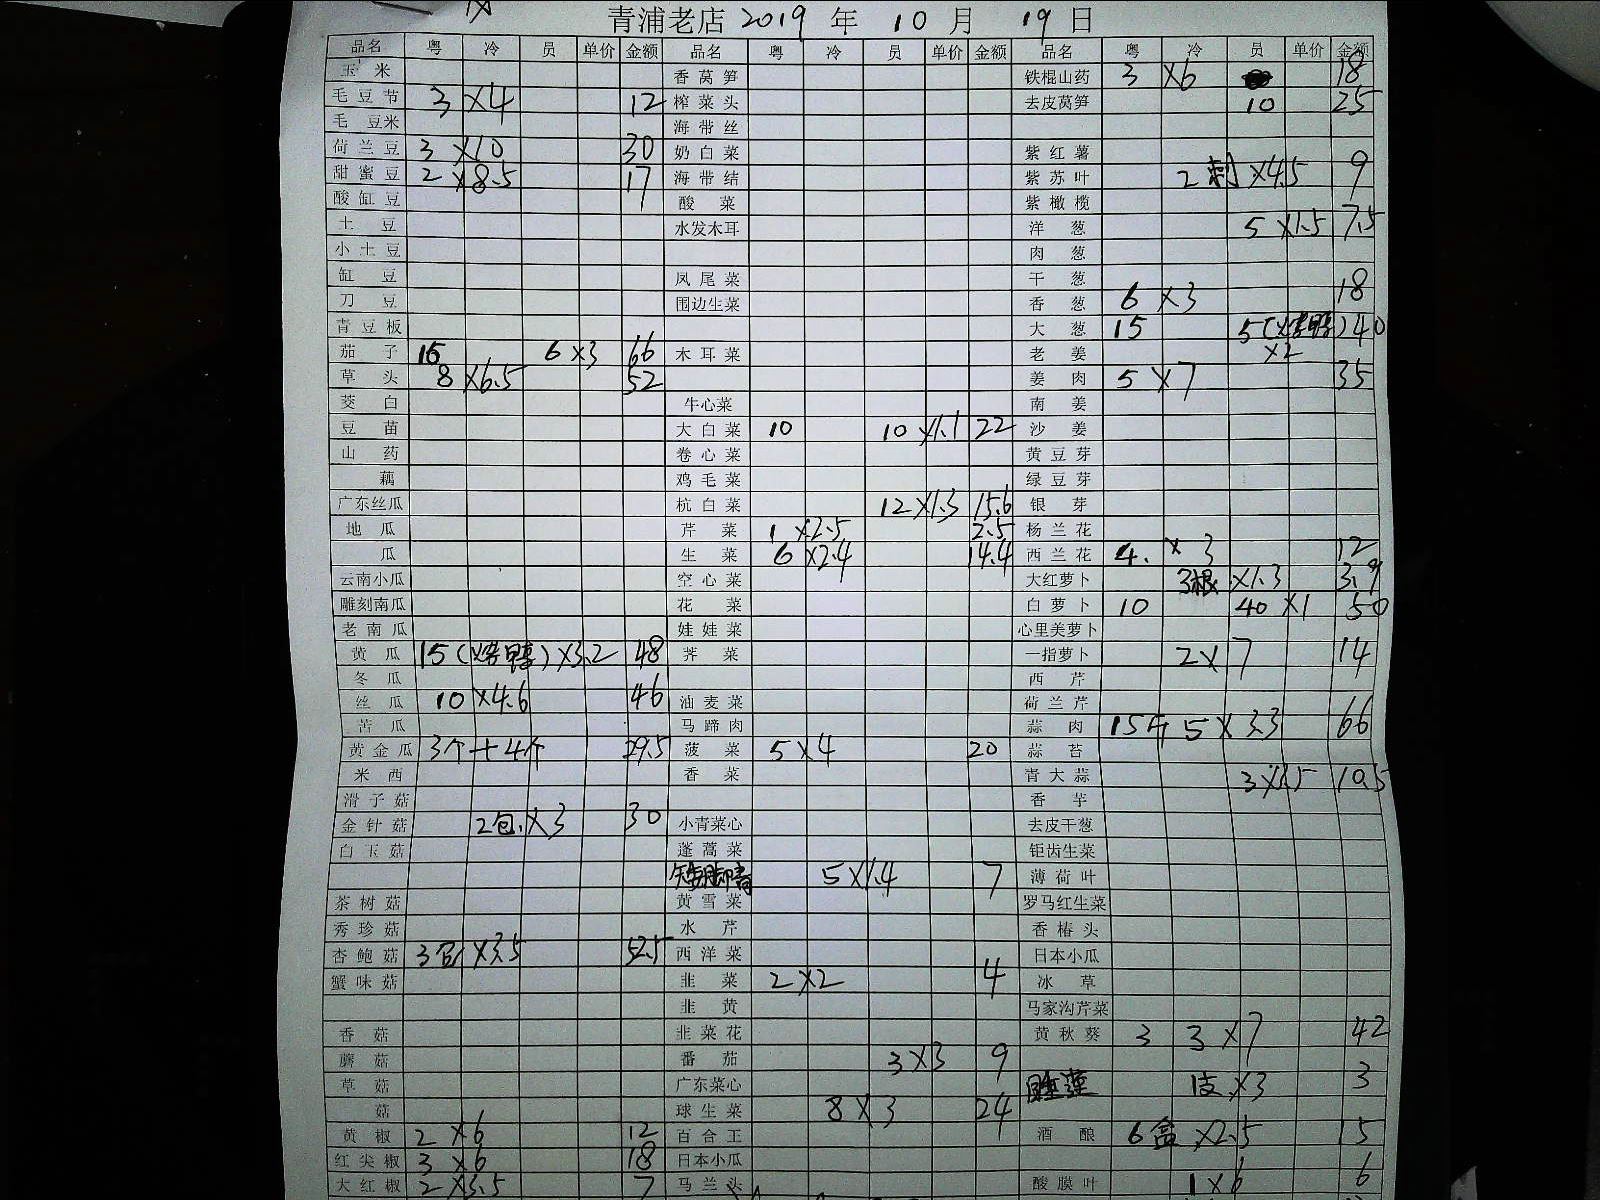 青浦老店 2019 年 10 月 19 日
品名 粤 冷 员 单价 金额 品名 粤 冷 员 单价 金额 品名 粤 冷 员 单价 金额
玉米 香莴笋 铁棍山药 3 ×6 18
毛豆节 3 ×4 12 榨菜头 去皮莴笋 10 25
毛豆米 海带丝
荷兰豆 3 ×10 30 奶白菜 紫红薯
甜蜜豆 2 ×8.5 17 海带结 紫苏叶 2刺 ×4.5 9
酸缸豆 酸菜 紫橄榄
土豆 水发木耳 洋葱 5 ×1.5 7.5
小土豆 肉葱
缸豆 凤尾菜 干葱
刀豆 围边生菜 香葱 6 ×3 18
青豆板 大葱 15 5(烤鸭) 40
茄子 16 6 ×3 66 木耳菜 老姜 ×2
草头 8 ×6.5 52 姜肉 5 ×7 35
茭白 牛心菜 南姜
豆苗 大白菜 10 10 ×1.1 22 沙姜
山药 卷心菜 黄豆芽
藕 鸡毛菜 绿豆芽
广东丝瓜 杭白菜 12 ×1.3 15.6 银芽
地瓜 芹菜 1 ×2.5 2.5 杨兰花
瓜 生菜 6 ×2.4 14.4 西兰花 4. ×3 12
云南小瓜 空心菜 大红萝卜 3根 ×1.3 3.9
雕刻南瓜 花菜 白萝卜 10 40 ×1 50
老南瓜 娃娃菜 心里美萝卜
黄瓜 15(烤鸭) ×3.2 48 荠菜 一指萝卜 2×7 14
冬瓜 西芹
丝瓜 10 ×4.6 46 油麦菜 荷兰芹
苦瓜 马蹄肉 蒜肉 15斤 5 ×3.3 66
黄金瓜 3个+4个 29.5 菠菜 5 ×4 20 蒜苔
米西 香菜 青大蒜 3 ×3.5 10.5
滑子菇 香芋
金针菇 2包 ×3 30 小青菜心 去皮干葱
白玉菇 蓬蒿菜 钜齿生菜
矮脚青 5 ×1.4 7 薄荷叶
茶树菇 黄雪菜 罗马红生菜
秀珍菇 水芹 香椿头
杏鲍菇 3包 ×3.5 52.5 西洋菜 日本小瓜
蟹味菇 韭菜 2 ×2 4 冰草
韭黄 马家沟芹菜
香菇 韭菜花 黄秋葵 3 3 ×7 42
蘑菇 番茄 3 ×3 9
草菇 广东菜心 睡莲 1支 ×3 3
菇 球生菜 8 ×3 24
黄椒 2 ×6 12 百合王 酒酿 6盒 ×2.5 15
红尖椒 3 ×6 18 日本小瓜
大红椒 2 ×3.5 7 马兰头 酸膜叶 1×6 6